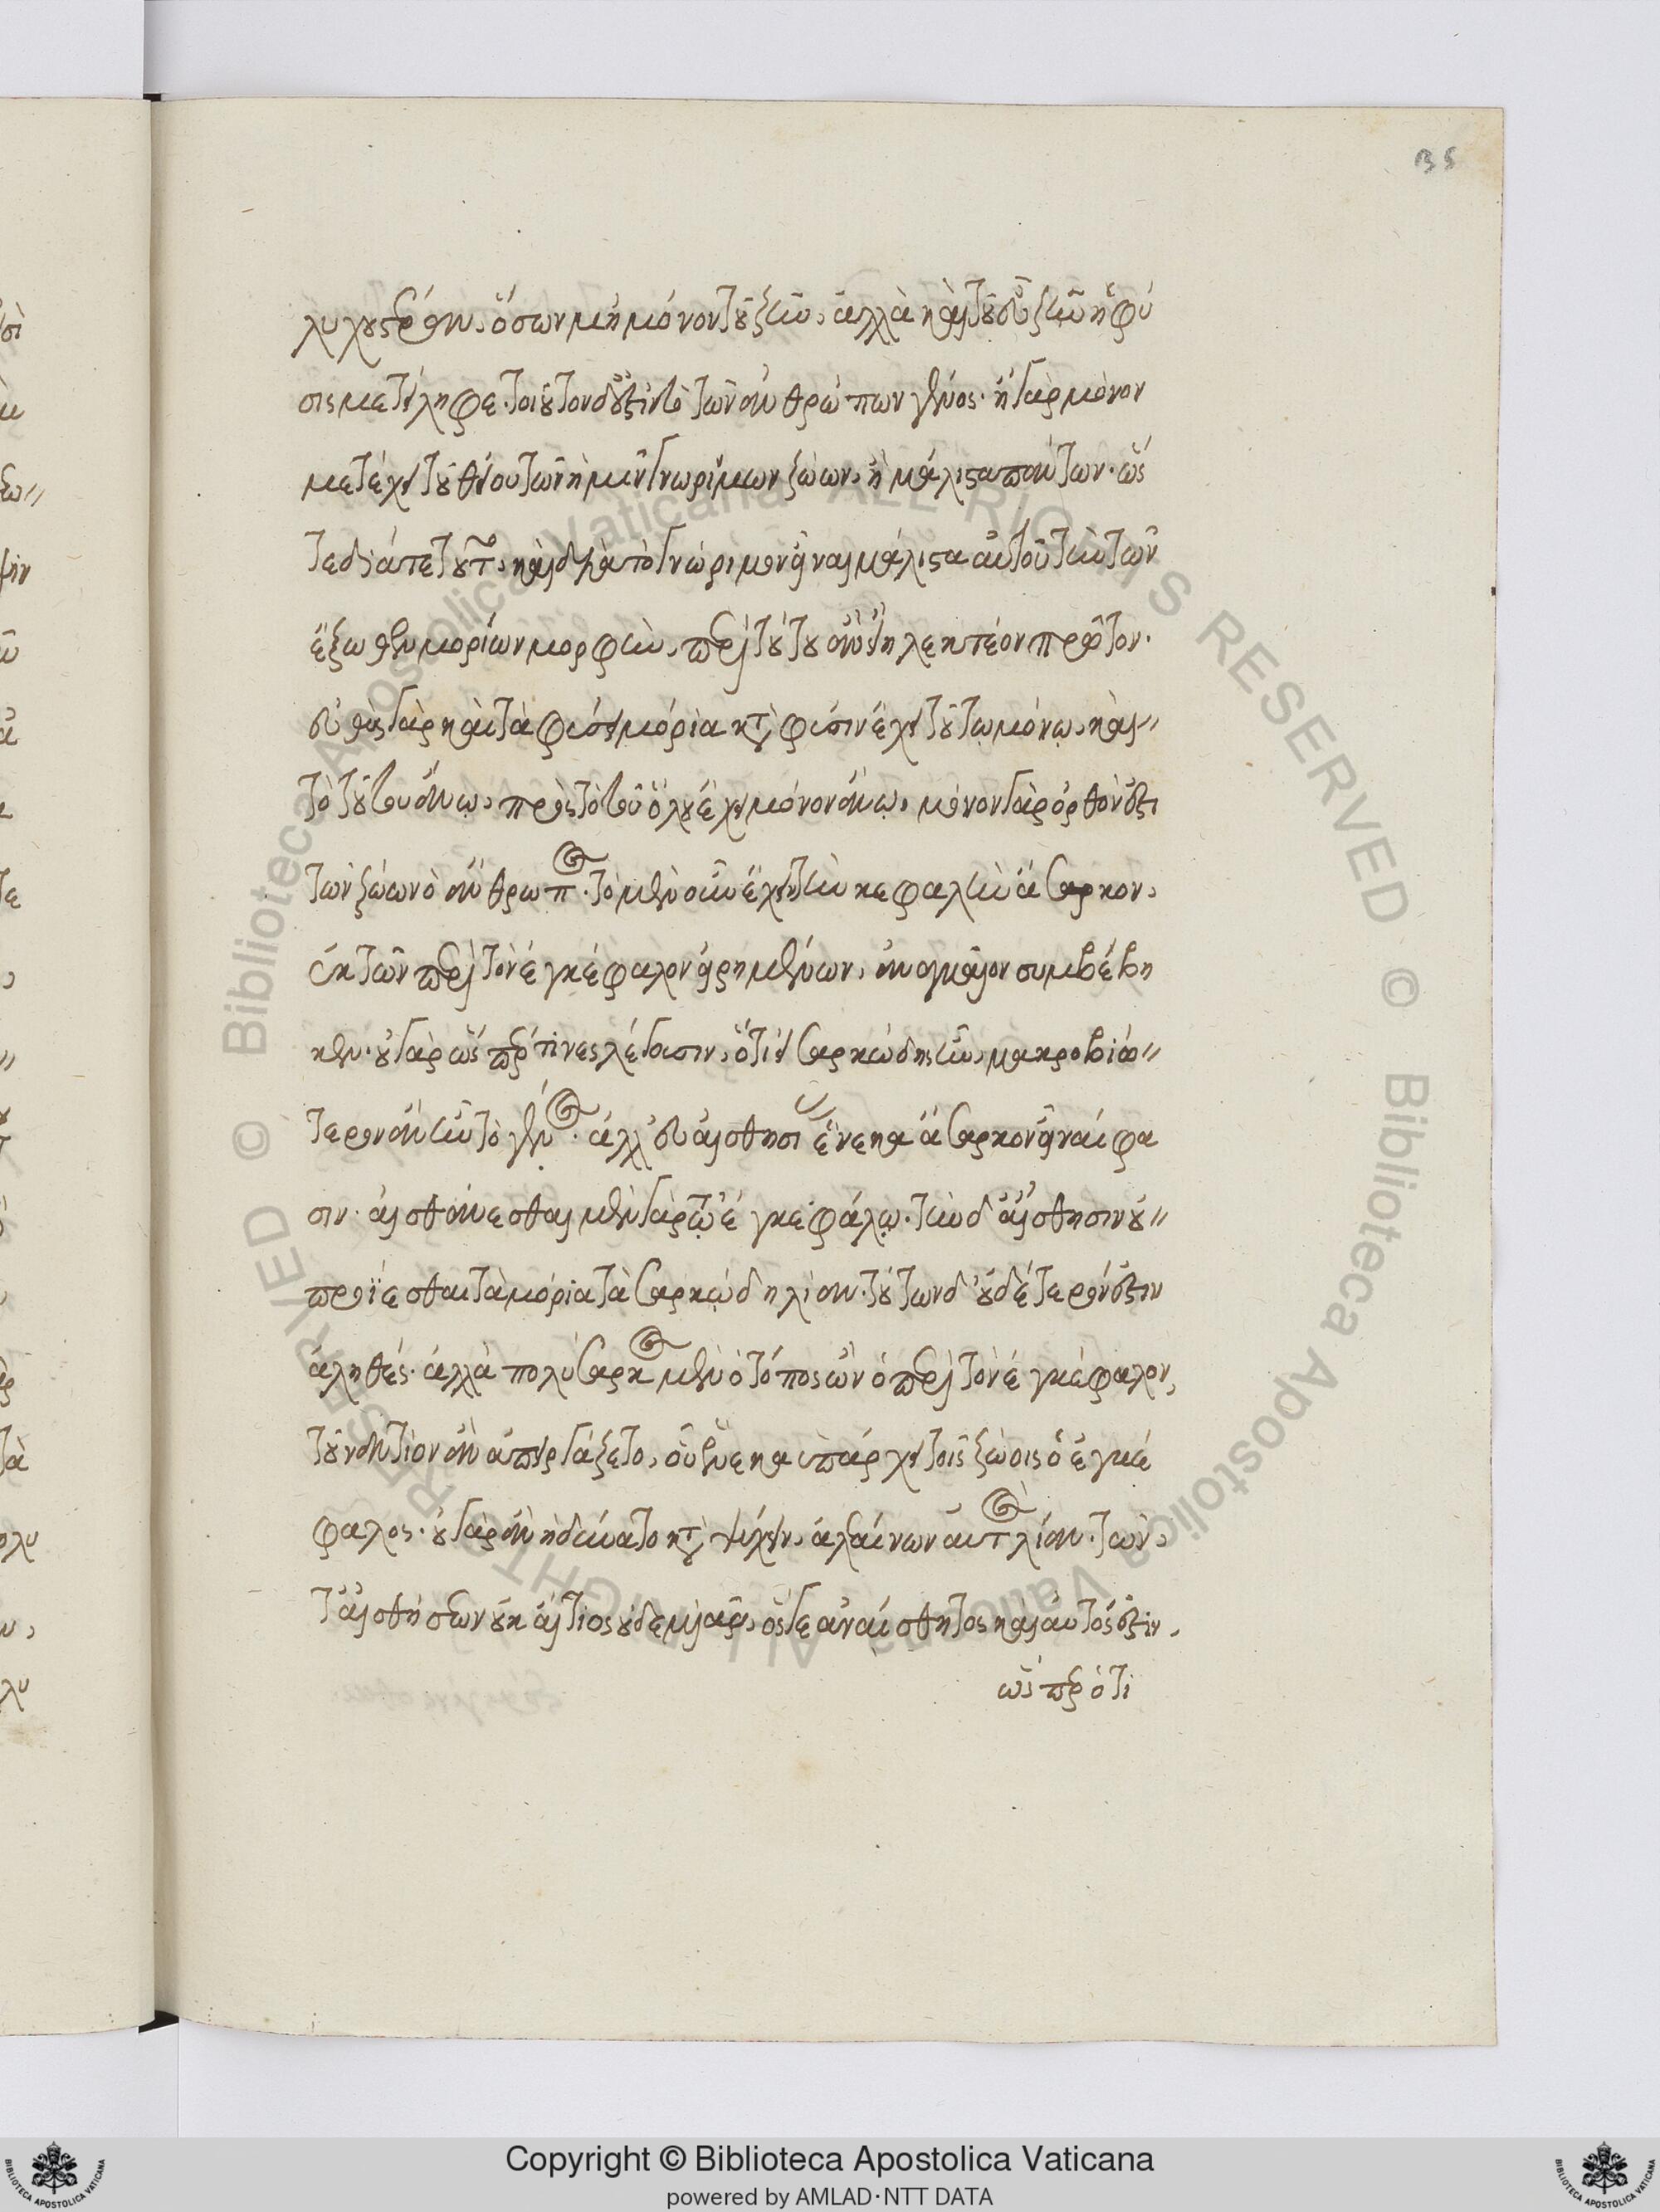 35
λυχουστέραν, ὅσων μὴ μόνον τοῦ ζῆν, ἀλλὰ καὶ τοῦ εὖ ζῆν ἡ φύ
σις μετείληφε. τοιοῦτον δ' ἐστὶ τὸ τῶν ἀνθρώπων γένος. ἢ γὰρ μόνον
μετέχει τοῦ θείου τῶν ἡμῖν γνωρίμων ζώων, ἢ μάλιστα πάντων. ὥς
τε διά τε τοῦτο, καὶ διὰ τὸ γνώριμον εἶναι μάλιστα αὐτοῦ τὴν τῶν
ἔξωθεν μορίων μορφὴν, περὶ τούτου λεκτέον πρῶτον.
εὐθὺς γὰρ καὶ τὰ φύσει μόρια κατὰ φύσιν ἔχει τούτῳ μόνῳ, καὶ
τὸ τούτου ἄνω, πρὸς τὸ τοῦ ὅλου ἔχει μόνον ἄνω, μόνον γὰρ ὀρθόν ἐστι
τῶν ζώων ὁ ἄνθρωπος. τὸ μὲν οὖν ἔχειν τὴν κεφαλὴν ἄσαρκον,
ἐκ τῶν περὶ τὸν ἐγκέφαλον εἰρημένων, ἀναγκαῖον συμβέβη
κεν. οὐ γὰρ ὥσπερ τινες λέγουσιν, ὅτι εἰ σαρκώδης ἦν, μακροβιώ
τερον ἂν ἦν τὸ γένος. ἀλλ' εὐαισθησίας ἕνεκα ἄσαρκον εἶναί φα
σιν. αἰσθάνεσθαι μὲν γὰρ τῷ ἐγκεφάλῳ. τὴν δ' αἴσθησιν οὐ
προΐεσθαι τὰ μόρια τὰ σαρκώδη λίαν. τούτων δ' οὐδέτερόν ἐστιν
ἀληθές. ἀλλὰ πολύσαρκος μὲν ὁ τόπος ὢν ὁ περὶ τὸν ἐγκέφαλον,
τοὐναντίον ἂν ἀπειργάζετο, οὗ ἕνεκα ὑπάρχει τοῖς ζώοις ὁ ἐγκέ
φαλος. οὐ γὰρ ἂν ἠδύνατο καταψύχειν, ἀλεαίνων αὐτὸς λίαν. τῶν,
τ' αἰσθήσεων οὐκ αἴτιος οὐδεμιᾶς, ὅς γε ἀναίσθητος καὶ αὐτός ἐστιν,
ὥσπερ ὁτι
Copyright © Biblioteca Apostolica Vaticana
powered by AMLAD·NTT DATA